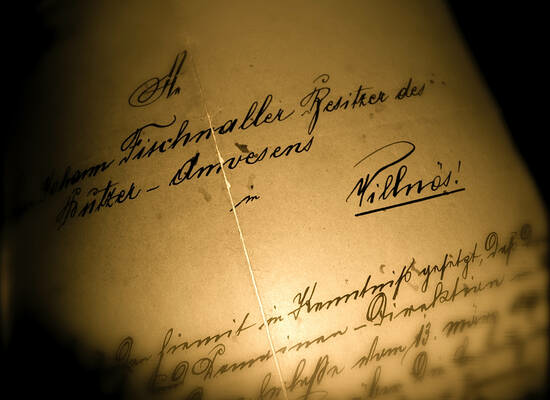 An
Johann Fischnaller Besitzer des
Putzer-Anwesens
in
Villnös!
hiemit in Kenntniß gesetzt, daß
Domainen-Direktion
vom 13. März